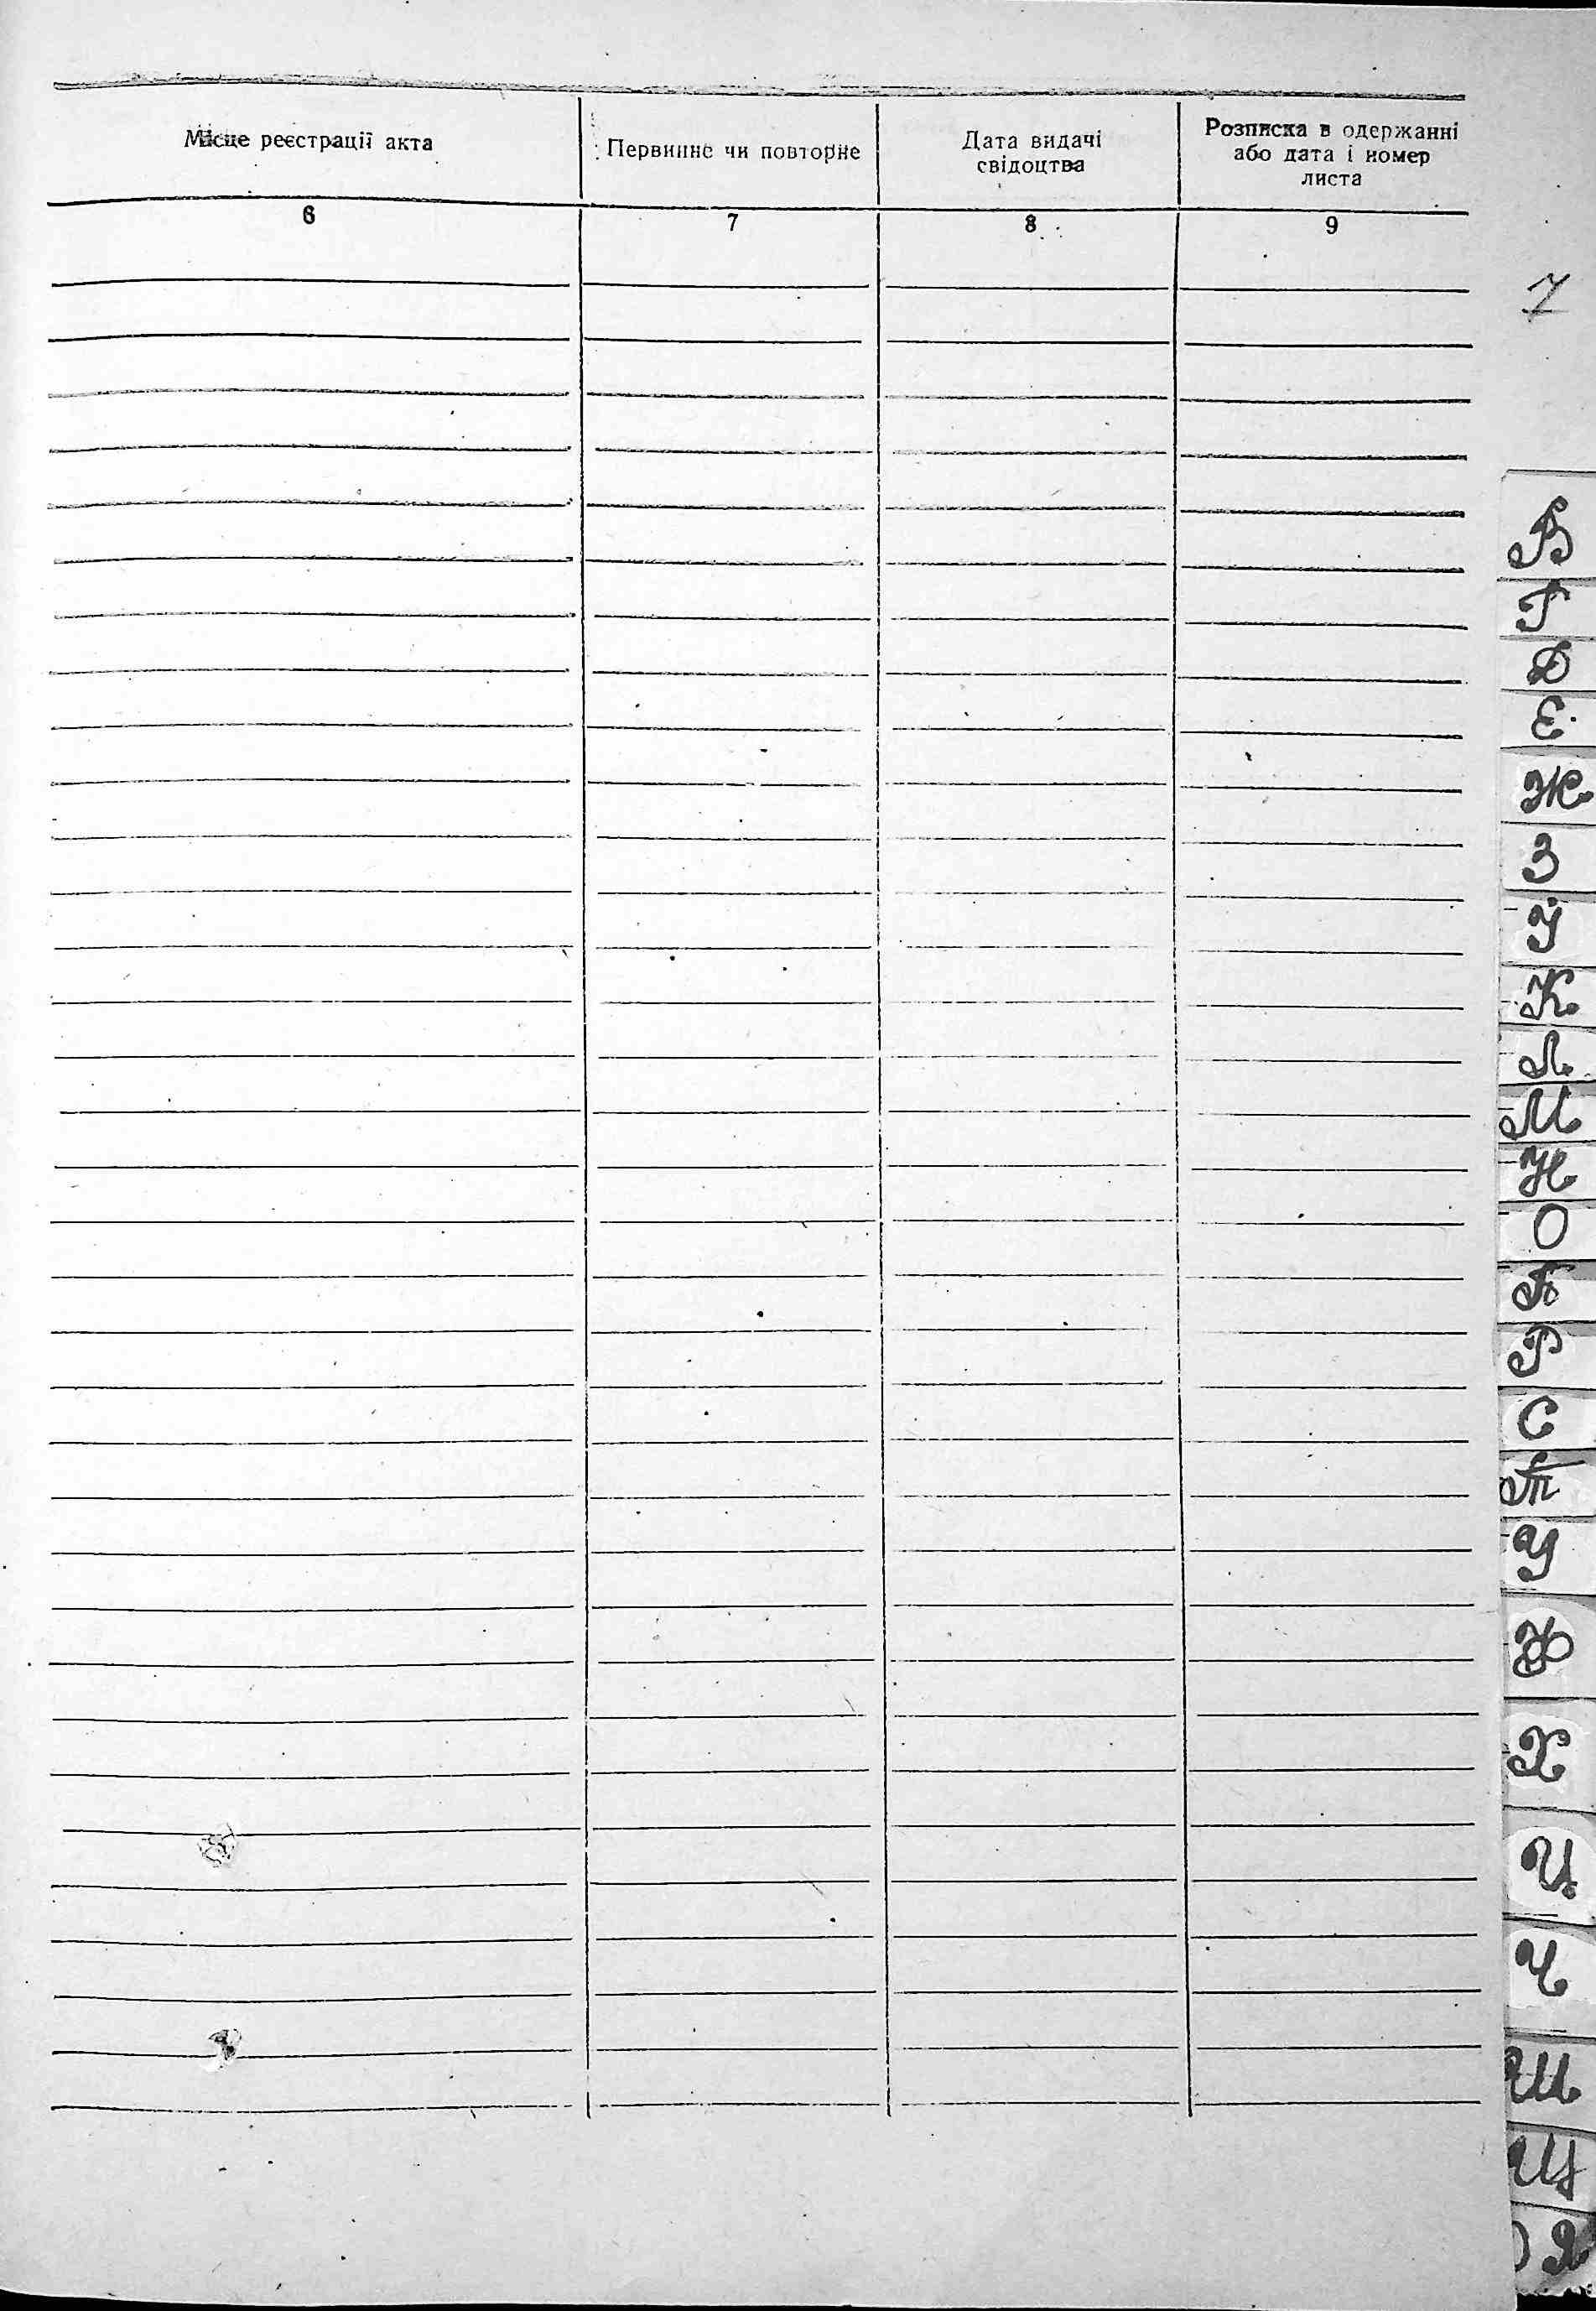 Місце реєстрації акта
Первинне чи повторне
Дата видачі
свідоцтва
Розписка в одержанні
або дата і номер
листа
6
7
8
9
7
В
Г
Д
Е
Ж
З
Й
К
Л
М
Н
О
П
Р
С
Т
У
Ф
Х
Ц
Ч
Ш
Щ
Я